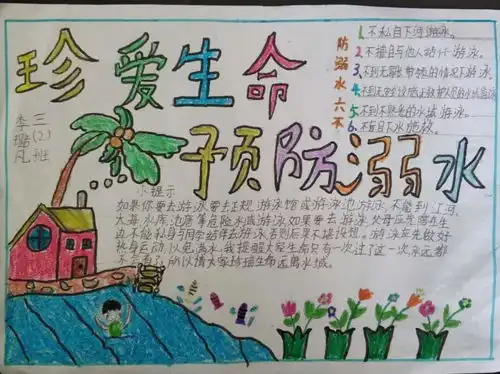 珍爱生命
预防溺水
三(2)班
李璐凡
防溺水六不
1.不私自下河游泳。
2.不擅自与他人结伴游泳。
3.不到无家长带领的情况下游泳
4.不到无安全设施、无救护人员的水域游泳
5.不到不熟悉的水域游泳。
6.不盲目下水施救。
小提示
如果你要去游泳要去正规游泳馆或游泳池游泳,不能到江河、
大海、水库、池塘等危险水域游泳如果要去游泳父母应当陪在身
边不能私自与同学结伴去游泳否则后果不堪设想。游泳应先做好
热身运动,以免溺水。我提醒大家生命只有一次过了这一次永远都
不会有了,所以请大家珍惜生命远离水域。